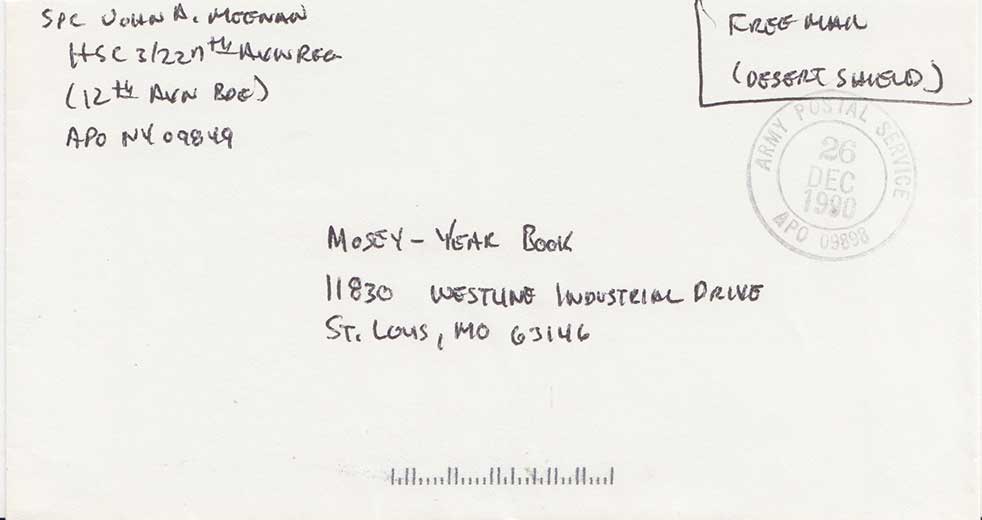 SPC JOHN A. MEENAN
HSC 3/227th AVN REG
(12th AVN BDE)
APO NY 09849
FREE MAIL
(DESERT SHIELD)
ARMY POSTAL SERVICE
26
DEC
1990
APO 09898
MOSEY - YEAR BOOK
11830 WESTLINE INDUSTRIAL DRIVE
ST. LOUIS, MO 63146